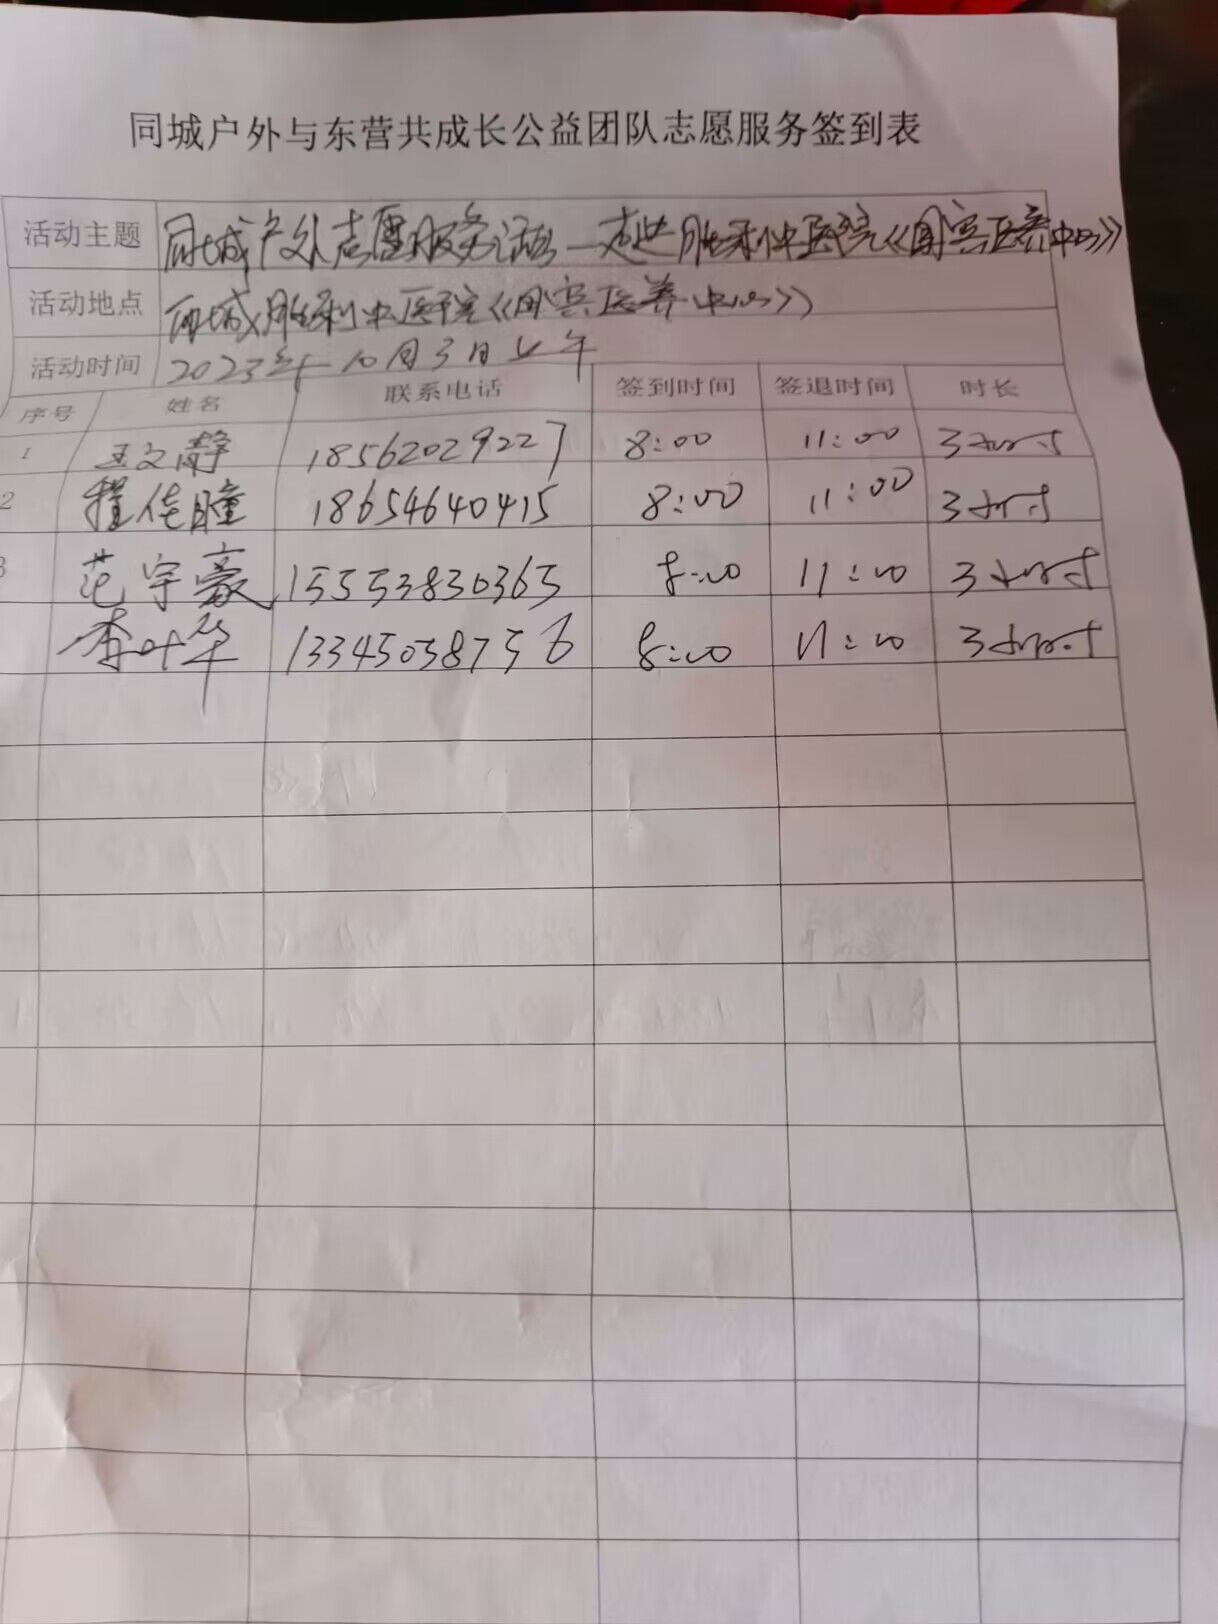 同城户外与东营共成长公益团队志愿服务签到表
活动主题 同城户外志愿服务活动—走进胜利中医院《国宾医养中心》
活动地点 西城胜利中医院《国宾医养中心》
活动时间 2023年10月3日上午
序号 姓名 联系电话 签到时间 签退时间 时长
1 王文静 18562029227 8:00 11:00 3小时
2 程佳瞳 18654640415 8:00 11:00 3小时
3 范宇豪 15553830365 8:00 11:00 3小时
李叶华 13345038756 8:00 11:00 3小时